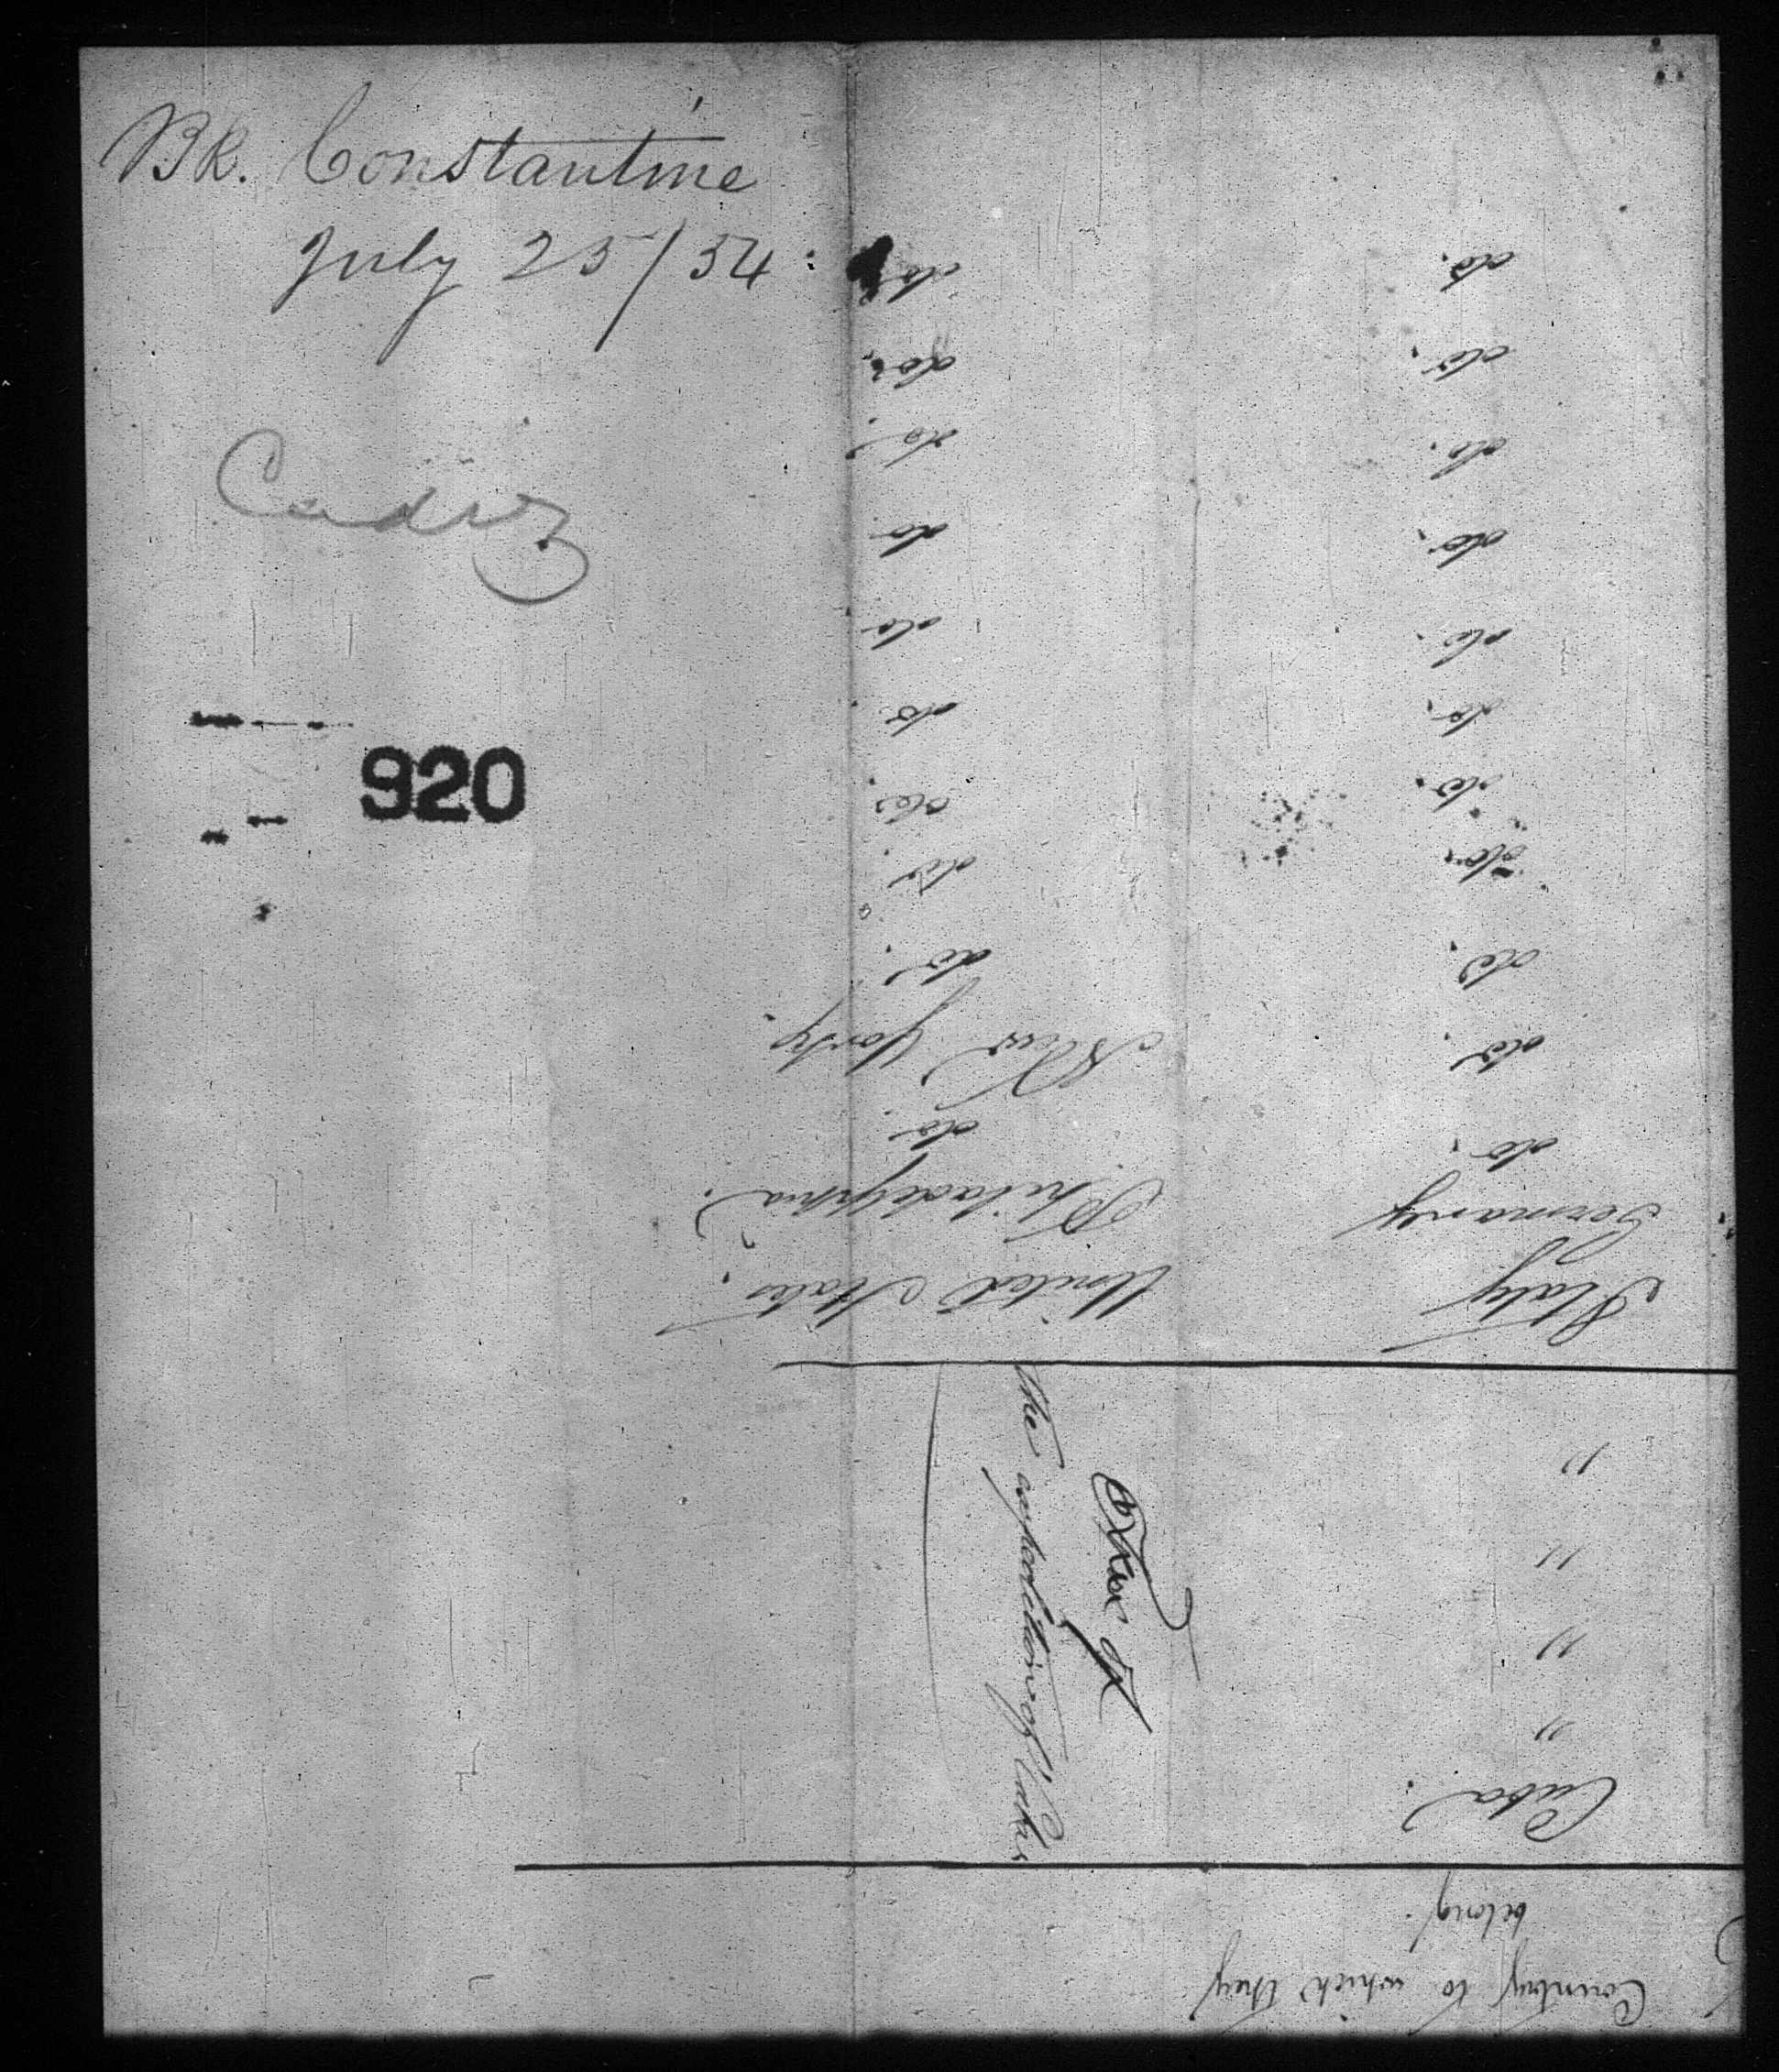 BK. Constantine
July 25/54
Cadiz
920
Country to which they
belong.
Cuba.
"
"
"
"
The
of
Italy United States.
Germany Philadelphia.
do. do.
do. New York.
do. do.
do. do.
do. do.
do. do.
do. do
do. do
do. do.
do. do.
do. do.